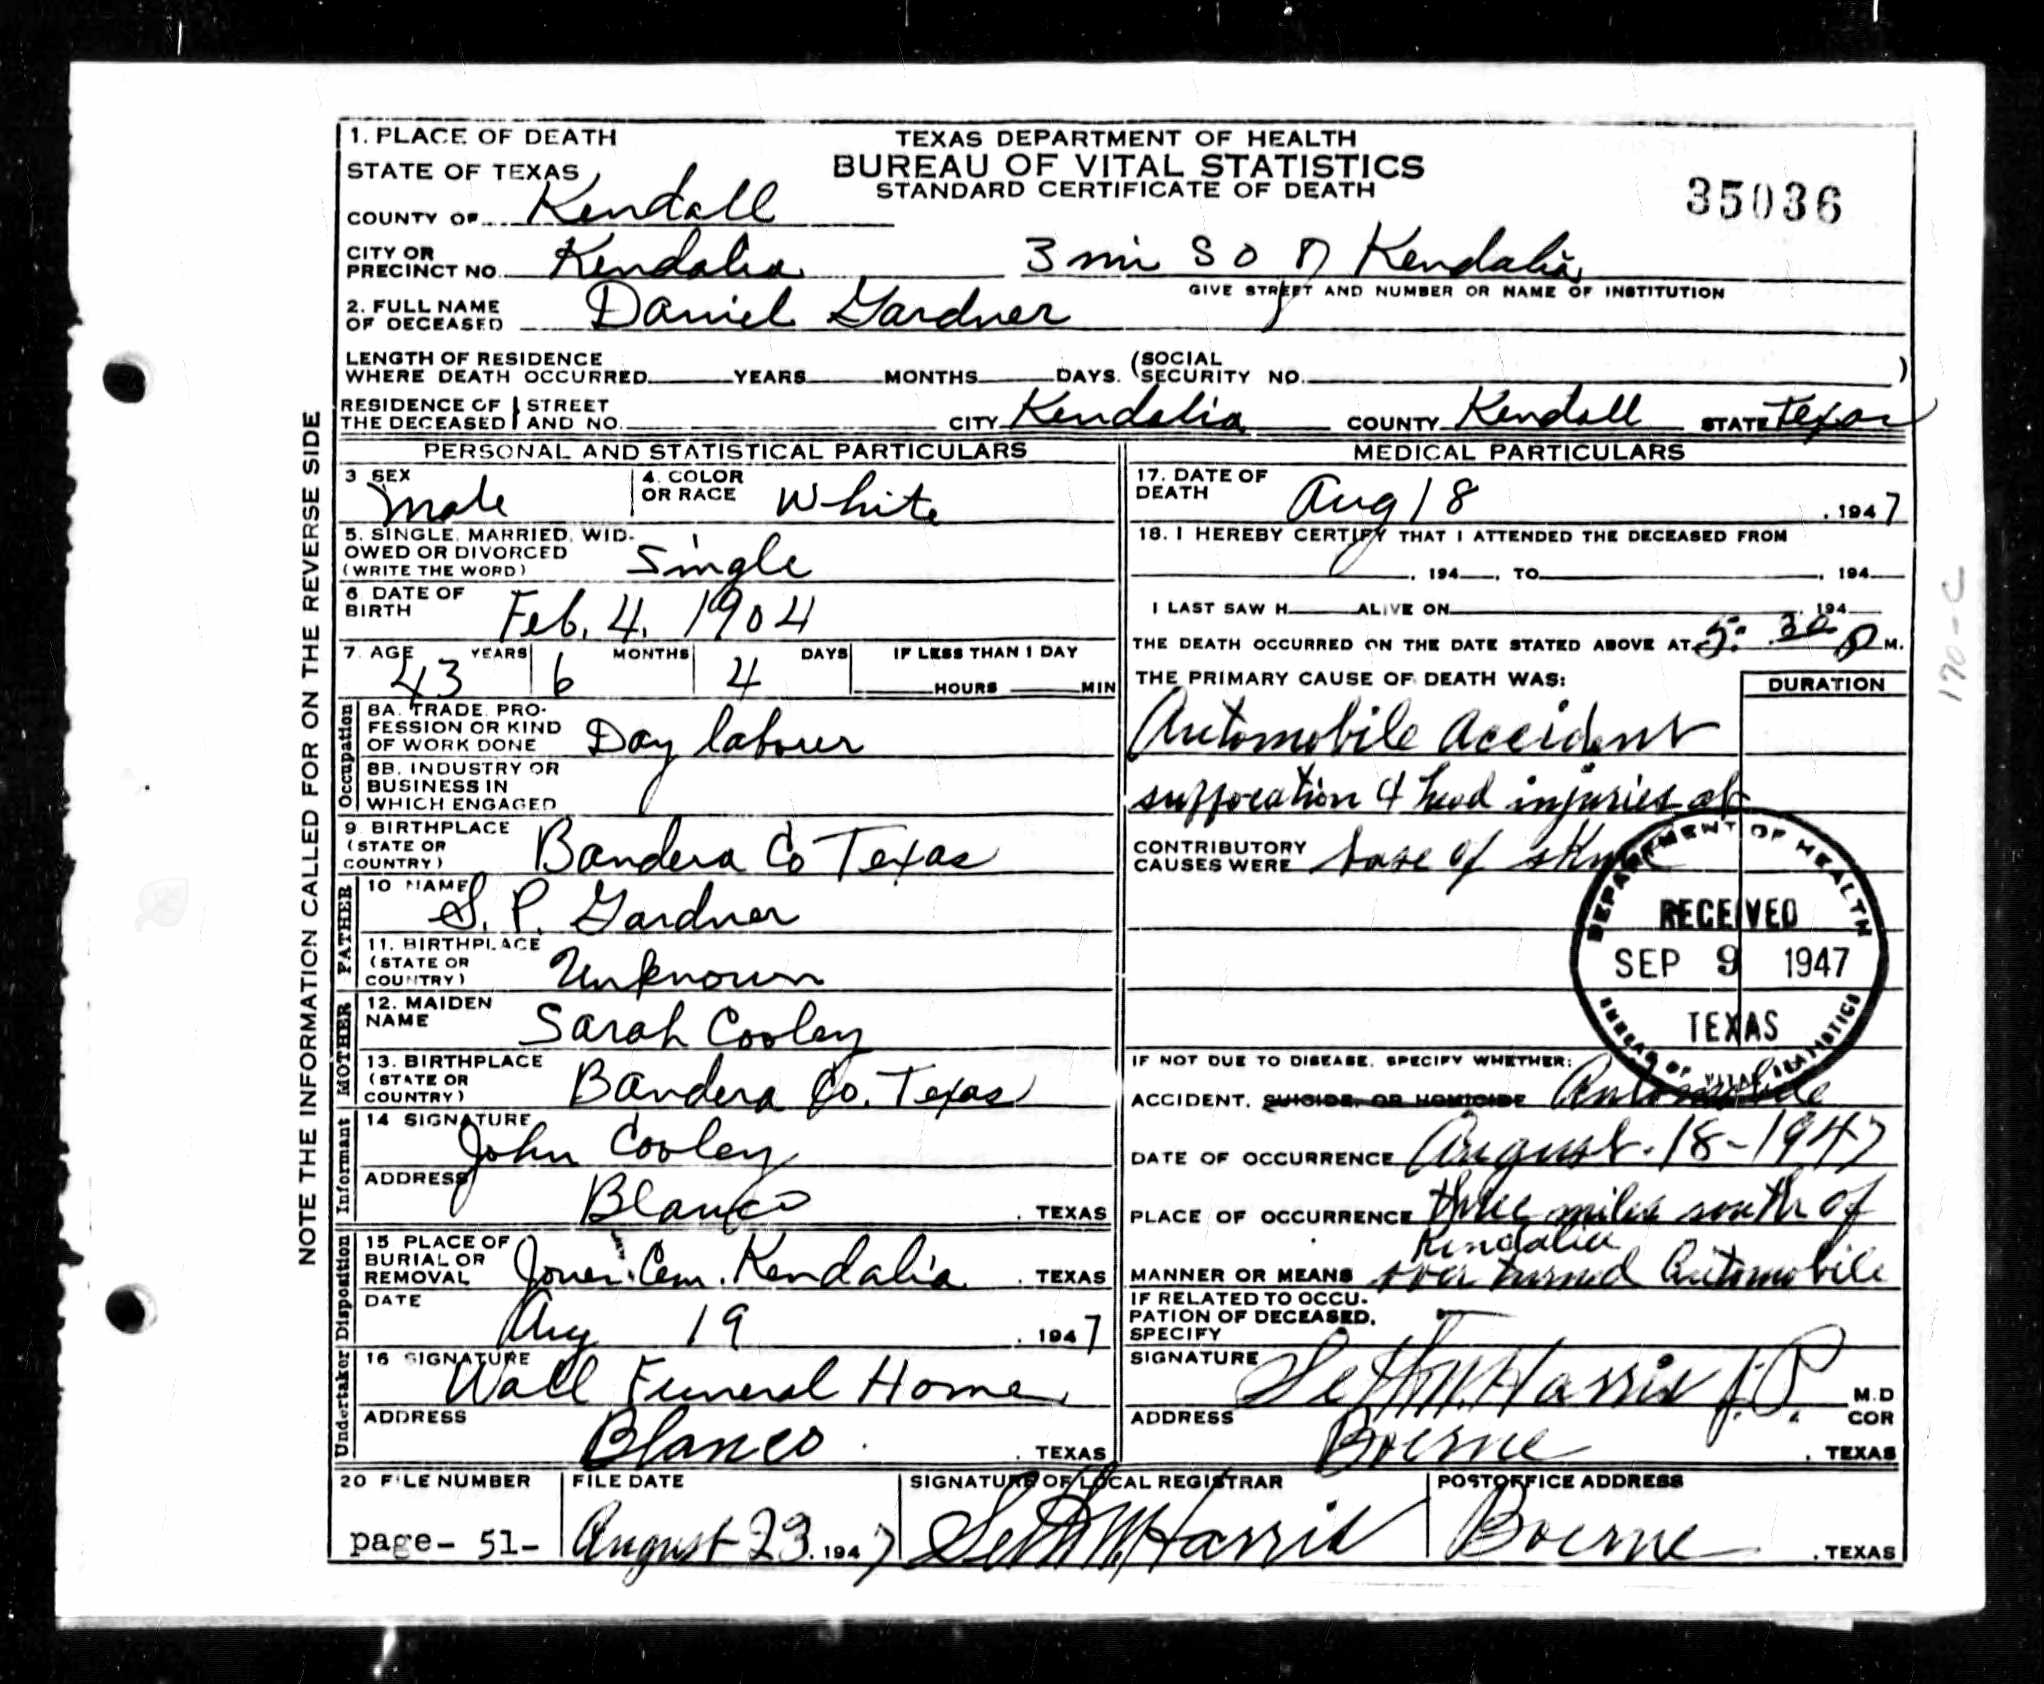 1. PLACE OF DEATH
TEXAS DEPARTMENT OF HEALTH
BUREAU OF VITAL STATISTICS
STANDARD CERTIFICATE OF DEATH
35036
STATE OF TEXAS
COUNTY OF Kendall
CITY OR PRECINCT NO. Kendalia 3 mi S of Kendalia
GIVE STREET AND NUMBER OR NAME OF INSTITUTION
2. FULL NAME OF DECEASED Daniel Gardner
LENGTH OF RESIDENCE WHERE DEATH OCCURRED YEARS MONTHS DAYS. (SOCIAL SECURITY NO. )
RESIDENCE OF THE DECEASED STREET AND NO. CITY Kendalia COUNTY Kendall STATE Texas
PERSONAL AND STATISTICAL PARTICULARS
3 SEX Male
4. COLOR OR RACE White
5. SINGLE, MARRIED, WIDOWED OR DIVORCED (WRITE THE WORD) Single
6 DATE OF BIRTH Feb. 4. 1904
7. AGE 43 YEARS 6 MONTHS 4 DAYS IF LESS THAN 1 DAY HOURS MIN
Occupation
8A. TRADE, PROFESSION OR KIND OF WORK DONE Day labourer
8B. INDUSTRY OR BUSINESS IN WHICH ENGAGED
9 BIRTHPLACE (STATE OR COUNTRY) Bandera Co Texas
FATHER
10 NAME S. P. Gardner
11. BIRTHPLACE (STATE OR COUNTRY) Unknown
MOTHER
12. MAIDEN NAME Sarah Cooley
13. BIRTHPLACE (STATE OR COUNTRY) Bandera Co. Texas
Informant
14 SIGNATURE John Cooley
ADDRESS Blanco, TEXAS
Disposition
15 PLACE OF BURIAL OR REMOVAL Jones Cem. Kendalia, TEXAS
DATE Aug 19, 1947
Undertaker
16 SIGNATURE Wall Funeral Home
ADDRESS Blanco, TEXAS
MEDICAL PARTICULARS
17. DATE OF DEATH Aug 18, 1947
18. I HEREBY CERTIFY THAT I ATTENDED THE DECEASED FROM
, 194 , TO , 194
I LAST SAW H ALIVE ON , 194
THE DEATH OCCURRED ON THE DATE STATED ABOVE AT 5:30 P M.
THE PRIMARY CAUSE OF DEATH WAS: DURATION
Automobile accident
suffocation & head injuries at
CONTRIBUTORY CAUSES WERE base of skull
DEPARTMENT OF HEALTH
RECEIVED
SEP 9 1947
TEXAS
BUREAU OF VITAL STATISTICS
IF NOT DUE TO DISEASE, SPECIFY WHETHER:
ACCIDENT, SUICIDE, OR HOMICIDE Automobile
DATE OF OCCURRENCE August-18-1947
PLACE OF OCCURRENCE three miles south of
Kendalia
MANNER OR MEANS over turned Automobile
IF RELATED TO OCCUPATION OF DECEASED, SPECIFY
SIGNATURE Seth W. Harris J.P. M.D COR
ADDRESS Boerne, TEXAS
20 FILE NUMBER page-51-
FILE DATE August 23, 1947
SIGNATURE OF LOCAL REGISTRAR Seth W. Harris
POSTOFFICE ADDRESS Boerne, TEXAS
NOTE THE INFORMATION CALLED FOR ON THE REVERSE SIDE
170-C